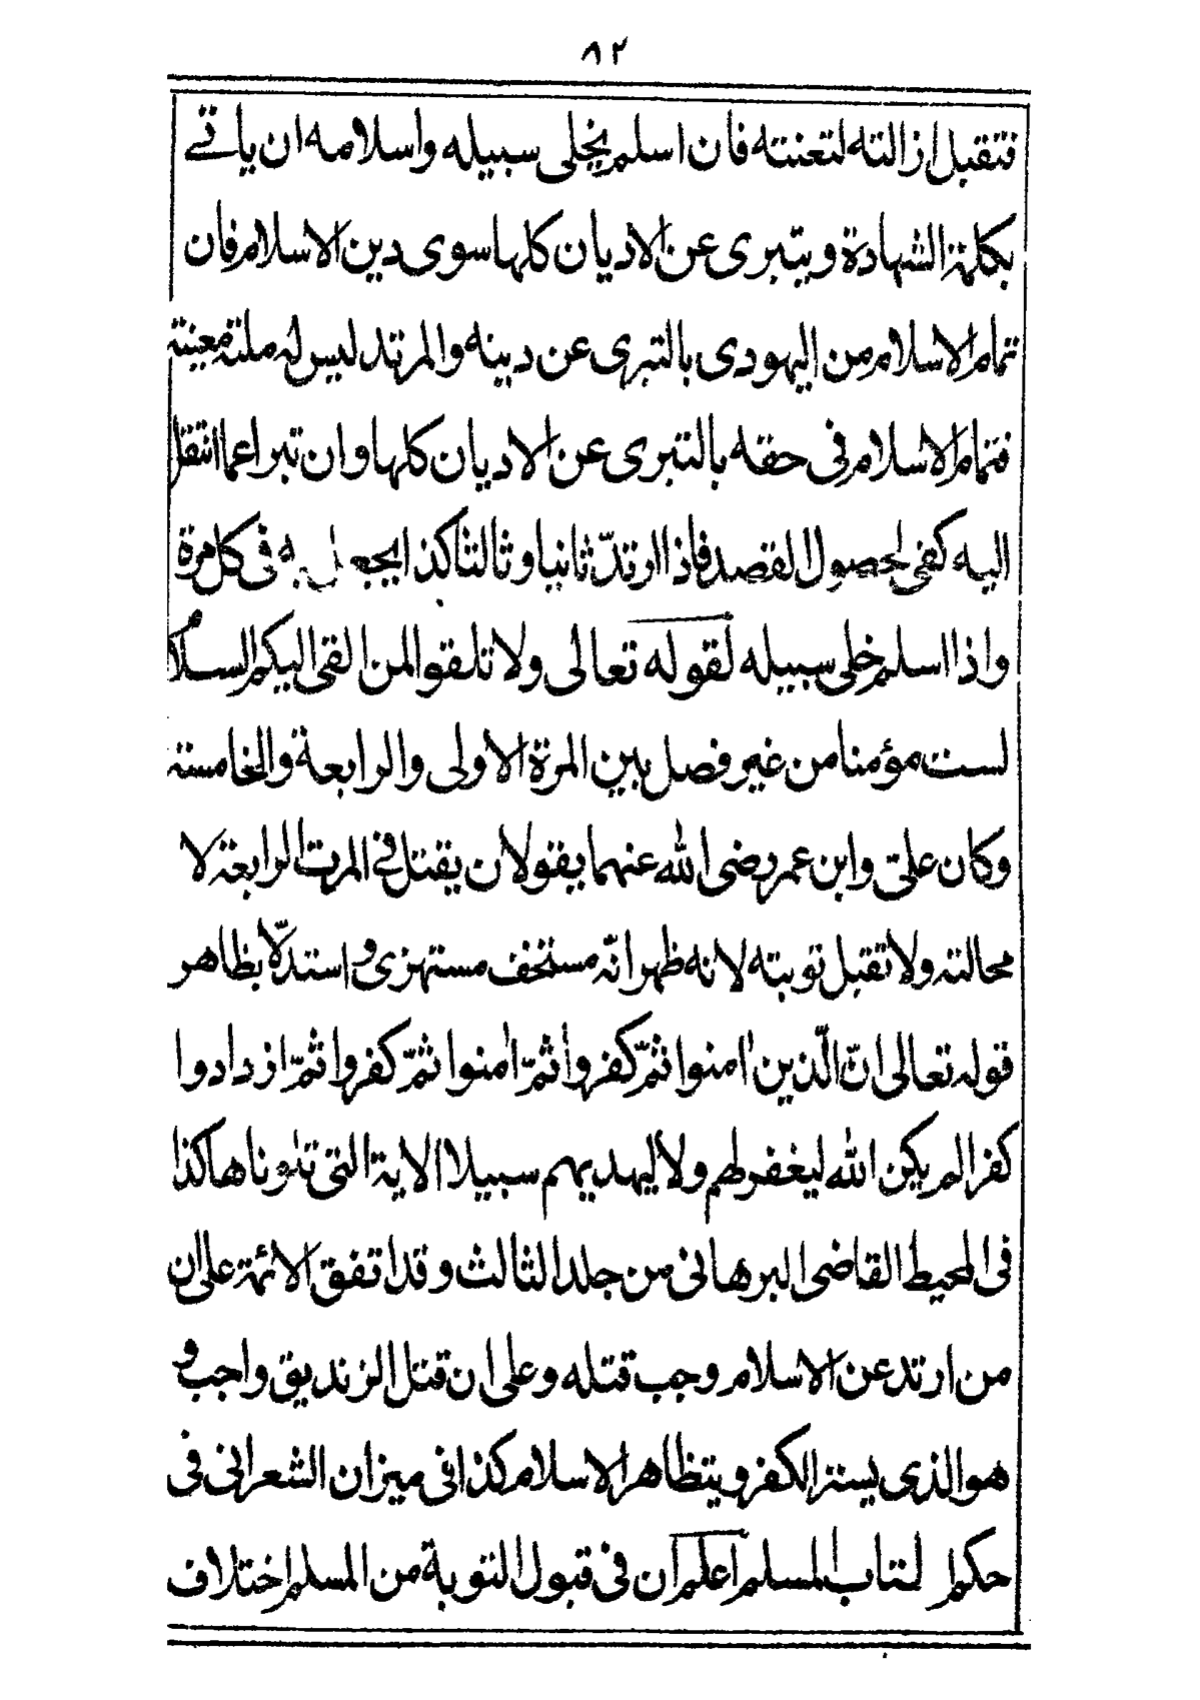 ٨٢
فتقبل ازالته لتعنته فان اسلم يخلى سبيله واسلامه ان ياتي
بكلمة الشهادة ويتبرى عن الاديان كلها سوى دين الاسلام فان
تمام الاسلام من اليهودى بالتبرى عن دينه والمرتد ليس له ملة معينة
فتمام الاسلام فى حقه بالتبرى عن الاديان كلها وان تبرا عما انتقل
اليه كفى لحصول القصد فاذا ارتدّ ثانيا وثالثا كذا يجعل به فى كل مرة
واذا اسلم خلى سبيله لقوله تعالى ولا تقولوا لمن القى اليكم السلام
لست مؤمنا من غير فصل بين المرة الاولى والرابعة والخامسة
وكان على وابن عمر رضى الله عنهما يقولان يقتل في المرت الرابعة لا
محالته ولا تقبل توبته لانه ظهر انّه مستخف مستهزى واستدلا بظاهر
قوله تعالى انّ الّذين اٰمنوا ثمّ كفروا ثمّ اٰمنوا ثمّ كفروا ثمّ ازدادوا
كفرا لم يكن الله ليغفر لهم ولا ليهديهم سبيلا الاية التى تلوناها كذا
فى المحيط القاضى البرهانى من جلد الثالث وقد اتفق الائمة على ان
من ارتد عن الاسلام وجب قتله وعلى ان قتل الزنديق واجب و
هو الذى يستر الكفر ويتظاهر الاسلام كذا فى ميزان الشعرانى فى
حكم لتاب المسلم اعلم ان فى قبول التوبة من المسلم اختلاف